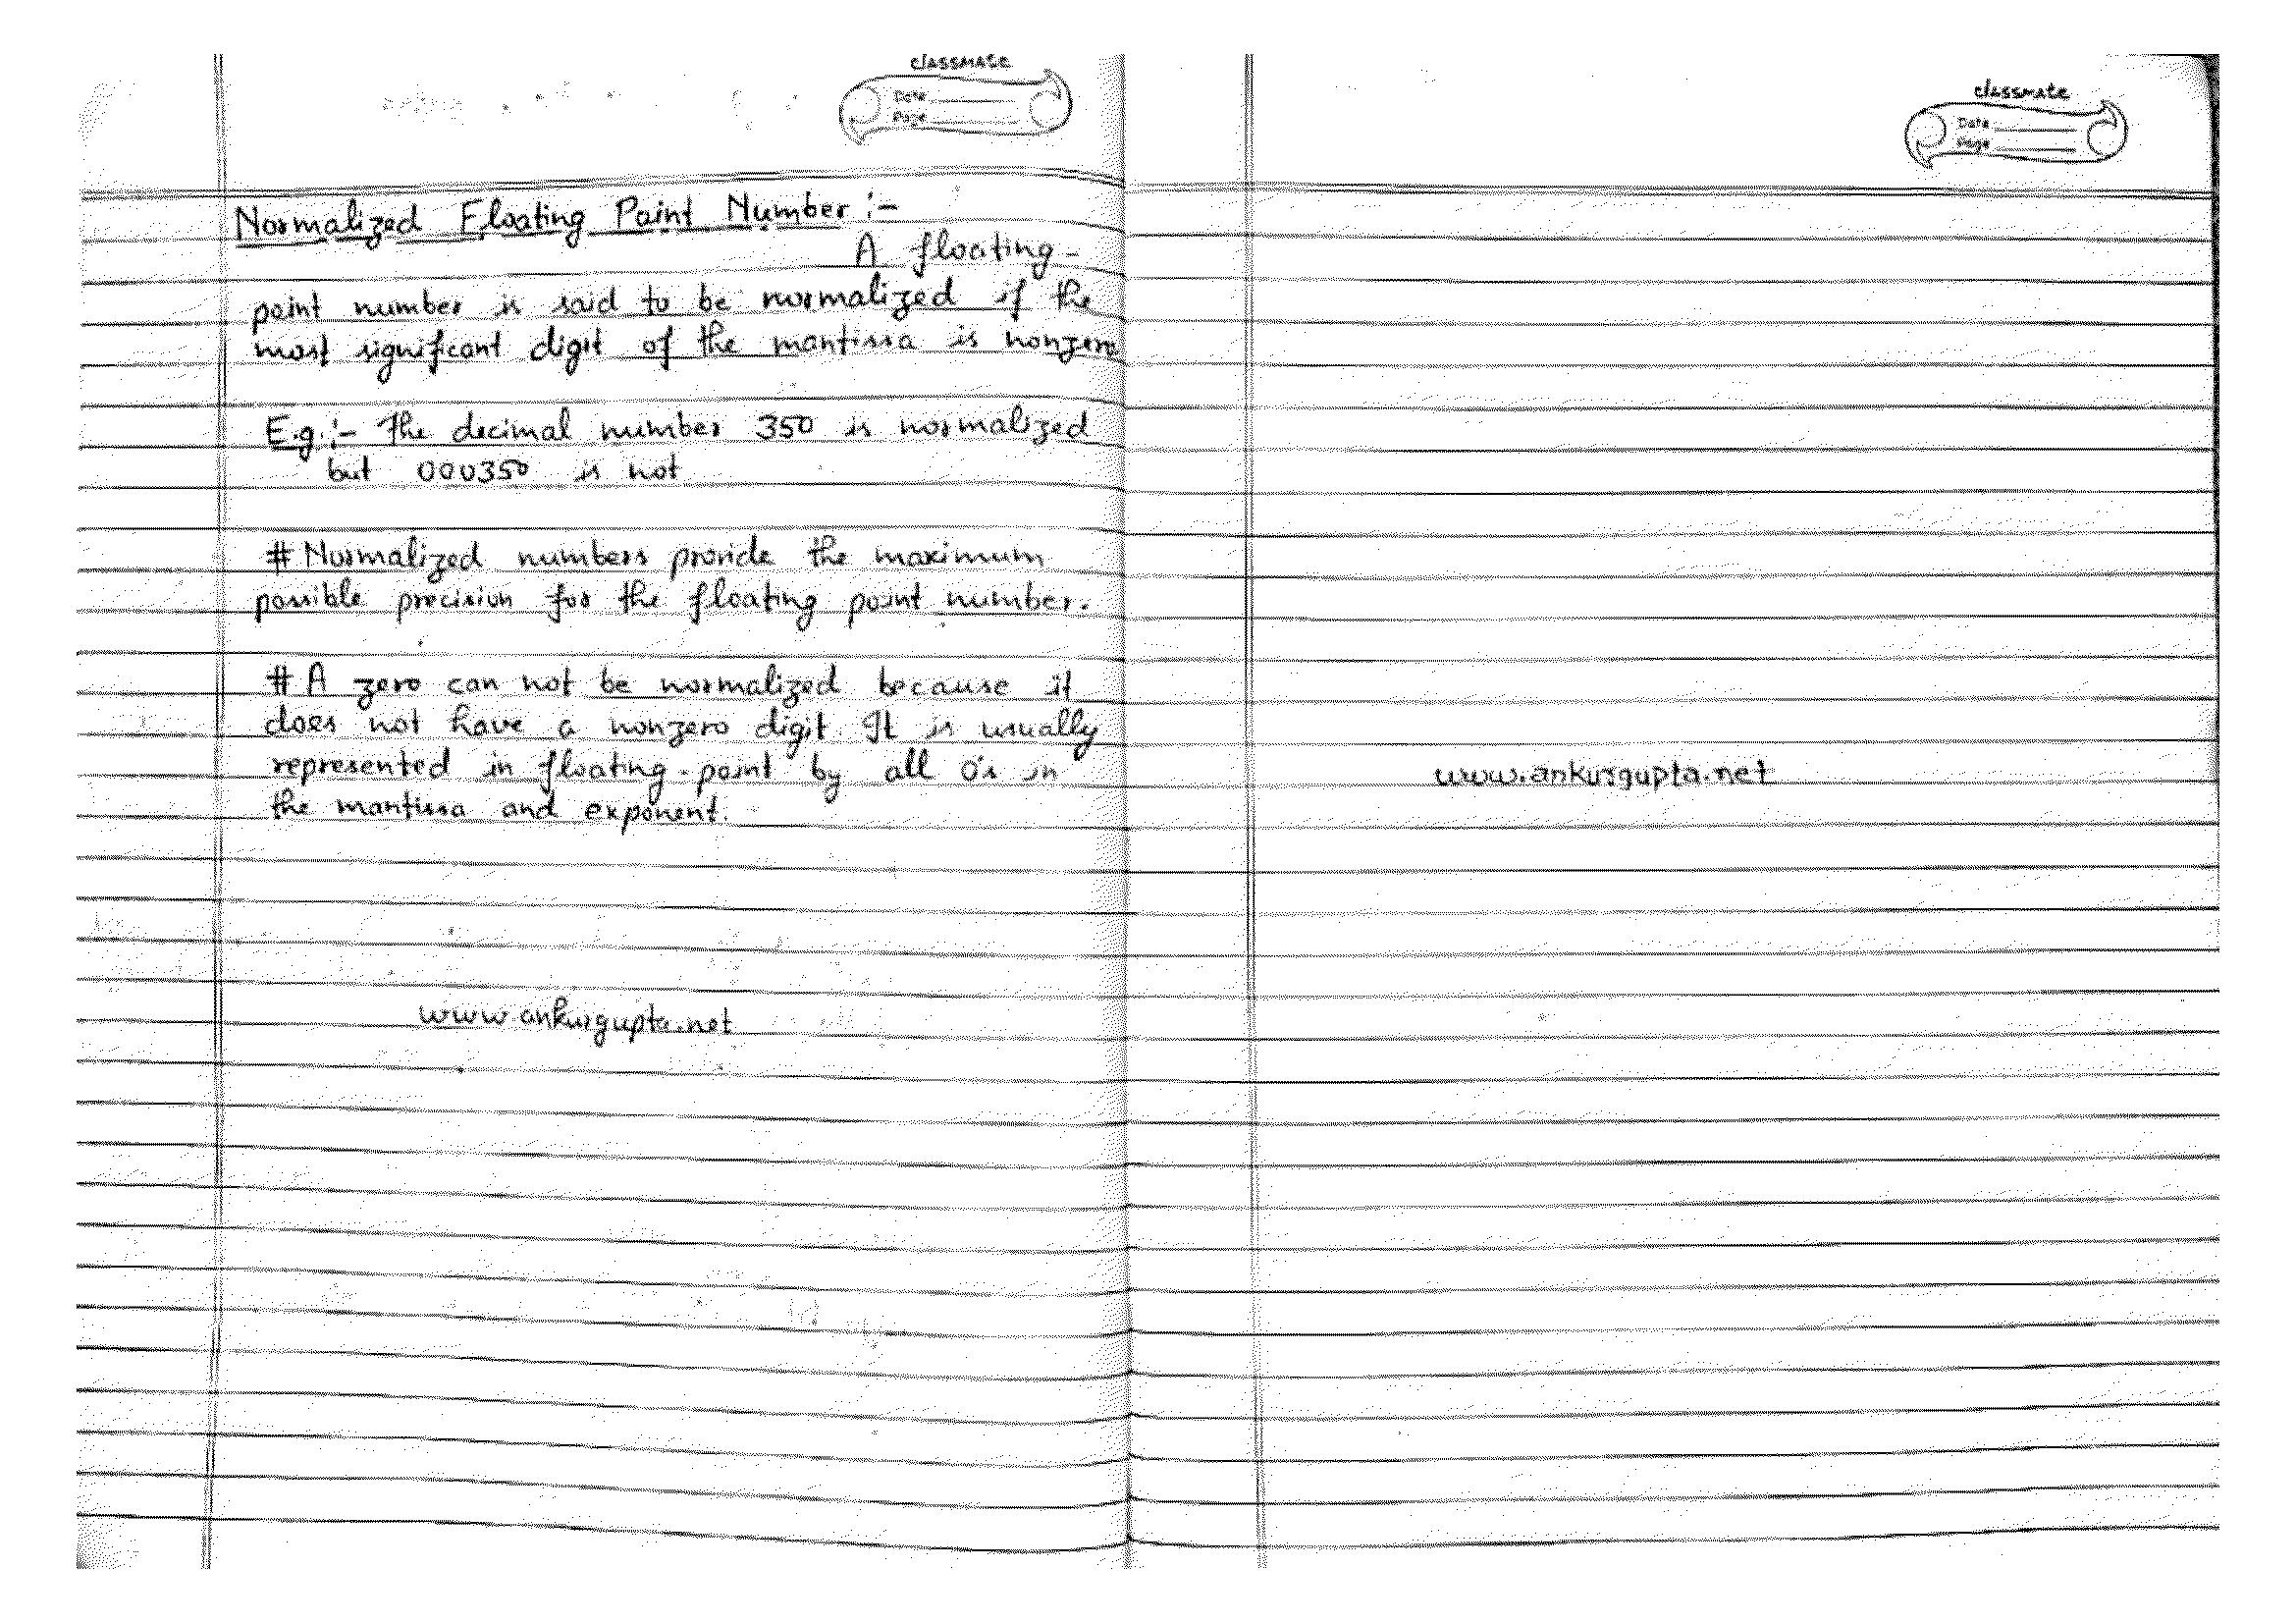 classmate
Date
Page
Normalized Floating Point Number :-
A floating-
point number is said to be normalized if the
most significant digit of the mantissa is nonzero
E.g.:- The decimal number 350 is normalized
but 000350 is not
# Normalized numbers provide the maximum
possible precision for the floating point number.
# A zero can not be normalized because it
does not have a nonzero digit. It is usually
represented in floating-point by all 0's in
the mantissa and exponent.
www.ankurgupta.net
classmate
Date
Page
www.ankurgupta.net